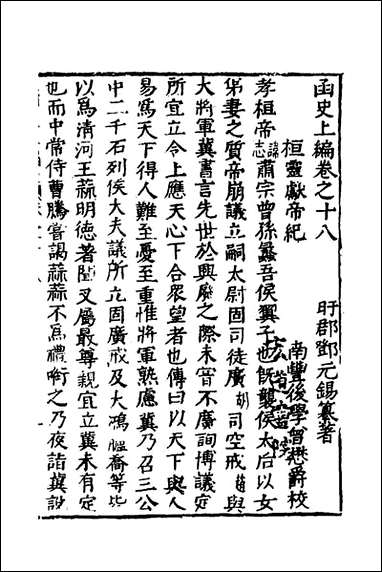 函史上編卷之十八
盱郡鄧元錫纂著
桓靈獻帝紀
南豐後學曾懋爵校
孝桓帝諱志肅宗曾孫蠡吾侯翼子也旣襲侯太后以女
弟妻之質帝崩議立嗣太尉固司徒廣胡司空戒趙與
大將軍冀書言先世於興廢之際未嘗不廣詢博議定
所宜立令上應天心下合衆望者也傳曰以天下與人
易爲天下得人難至憂至重惟將軍熟慮冀乃召三公
中二千石列侯大夫議所立固廣戒及大鴻臚喬等皆
以爲清河王蒜明德著聞又屬最尊親宜立冀未有定
也而中常侍曹騰嘗謁蒜蒜不爲禮啣之乃夜詣冀說